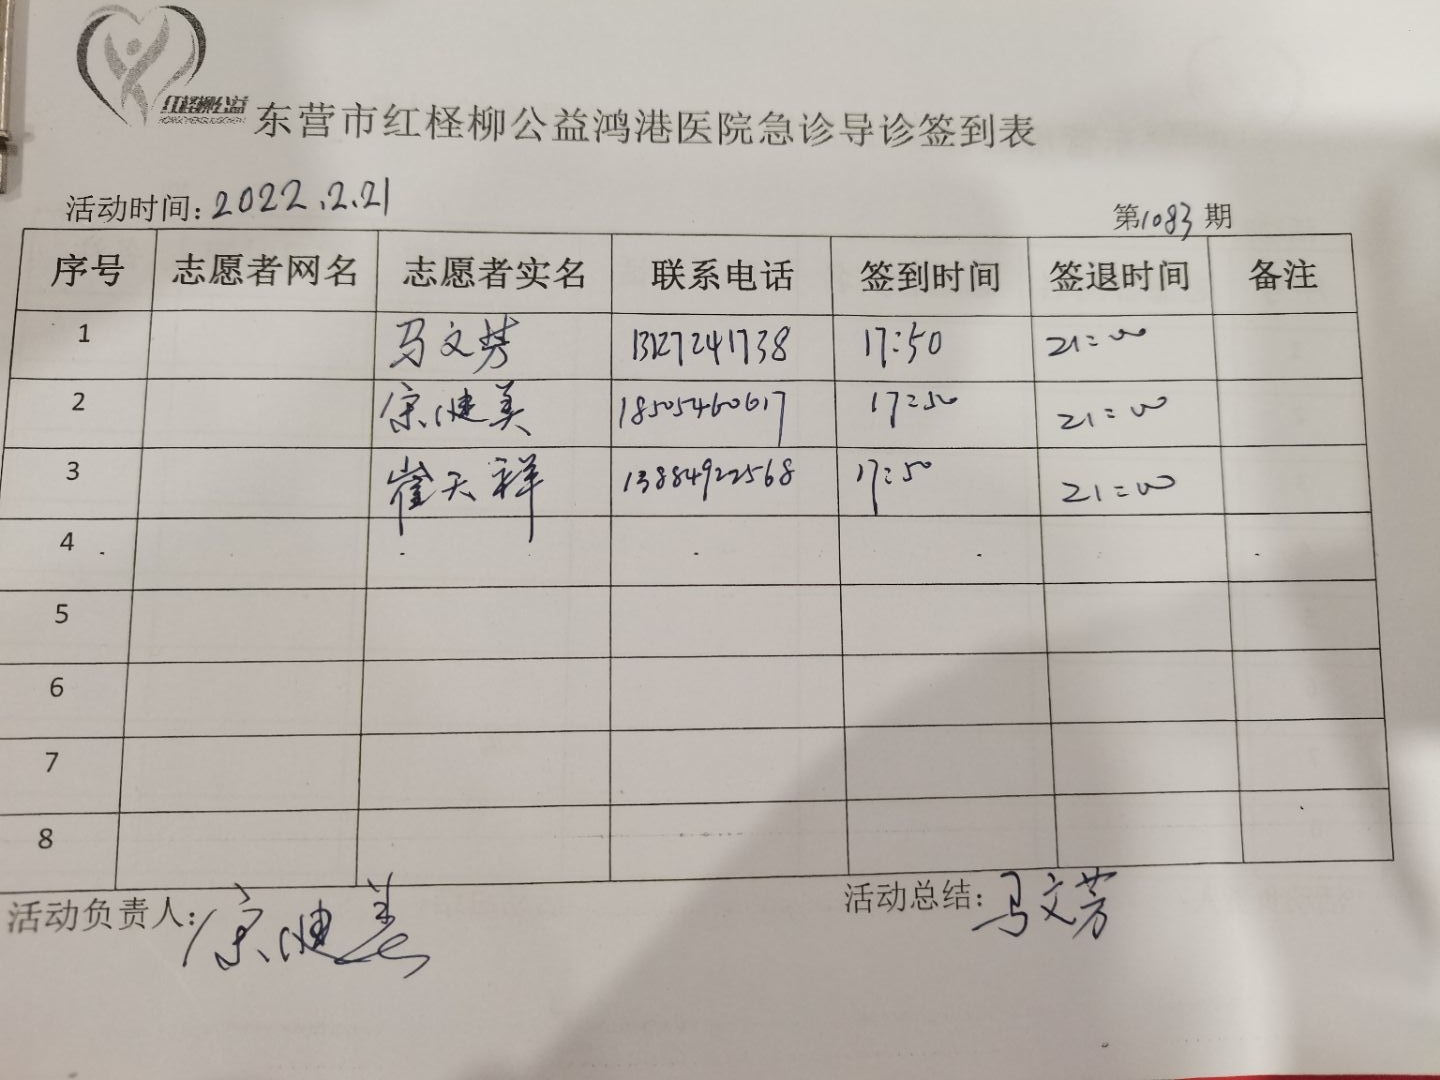 红柽柳公益
东营市红柽柳公益鸿港医院急诊导诊签到表
活动时间：2022.2.21
第1083期
序号 志愿者网名 志愿者实名 联系电话 签到时间 签退时间 备注
1 马文芳 13127241738 17:50 21:00
2 宗健美 18505460617 17:50 21:00
3 崔天祥 13884922568 17:50 21:00
4
5
6
7
8
活动负责人：宗健美 活动总结：马文芳